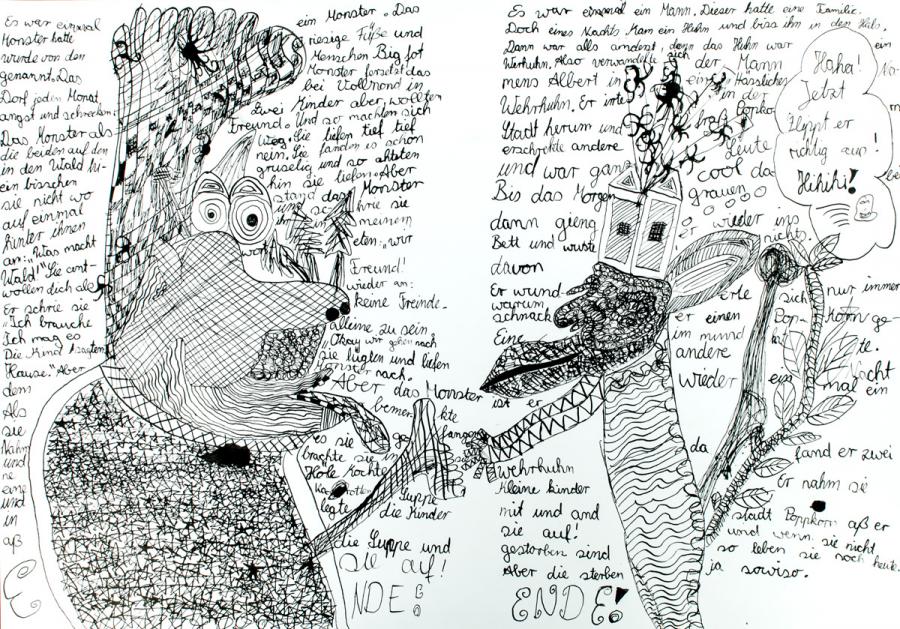 Es war einmal ein Monster. Das
Monster hatte riesige Füße und
wurde von den Menschen Big fot
genannt. Das Monster fersetzt das
Dorf jeden Monat bei Vollnond in
angst und schrecken. Zwei Kinder aber wollten
Das Monster als Freund. Und so machten sich
die beiden auf den Weg. Sie liefen tief tief
in den Wald hi- nein. Sie fanden es schon
ein bisschen gruselig und so ahtsten
sie nicht wo hin sie liefen. Aber
auf einmal stand das Monster
hinter ihnen schrie sie
an: "Was macht in meinem
Wald!" Sie ant- eten: "wir
wollen dich als Freund!
Er schrie sie wieder an:
"Ich brauche keine Freinde.
Ich mag es alleine zu sein.
Die Kind sagten "Okay wir gehen nach
Hause." Aber sie lügten und liefen
dem Monster nach.
Als Aber das Monster
sie bemer kte
Nahm es sie ge fangen
und brachte sie in
ne Höle Kochte
eine Ka rotten Suppe
und legte die Kinder
in die Suppe und
aß sie auf!
ENDE!
Es war einmal ein Mann. Dieser hatte eine Familie.
Doch eines Nachts kam ein Huhn und biss ihn in den Hals.
Dann war alls anderst, denn das Huhn war ein
Werhuhn. Also verwandelte sich der Mann Na-
mens Albert in ein Hässliches
Wehrhuhn. Er irte in der
Stadt herum und Popko-
erschrekte andere Leute
und war ganz cool da bei
Bis das Morgen grauen
dann gieng er wieder ins
Bett und wuste nichts.
davon
Er wund- erte sich nur immer
warum er einen Pop- Korn ge-
schnack im mund te.
Eine andere Nacht
ist er wieder ein mal ein
Wehrhuhn da fand er zwei
kleine kinder Er nahm sie
mit und and stadt Poppkorn aß er
sie auf! und wenn sie nicht
gestorben sind so leben sie noch heute.
Aber die sterben ja sowiso.
ENDE!
Haha!
Jetzt
flippt er
richtig aus!
Hihihi!